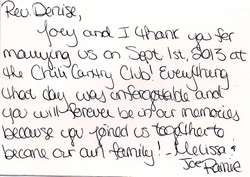 Rev. Denise,
Joey and I thank you for
marrying us on Sept 1st, 2013 at
the Chili Cantry Club! Everything
that day was unforgettable and
you will forever be in our memories
because you joined us together to
become our own family! - Melissa &
Joe